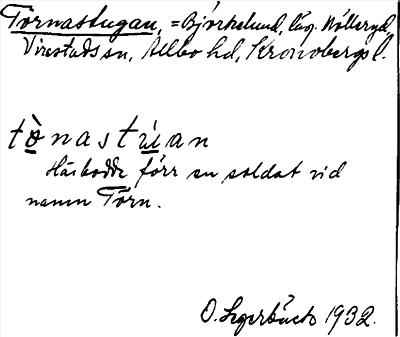 Törnastugan, = Björkelund, läg. Målleryd,
Virestads sn, Allbo hd, Kronobergs l.
tònastúan
Här bodde förr en soldat vid
namn Törn.
O. Segerbäck 1932.